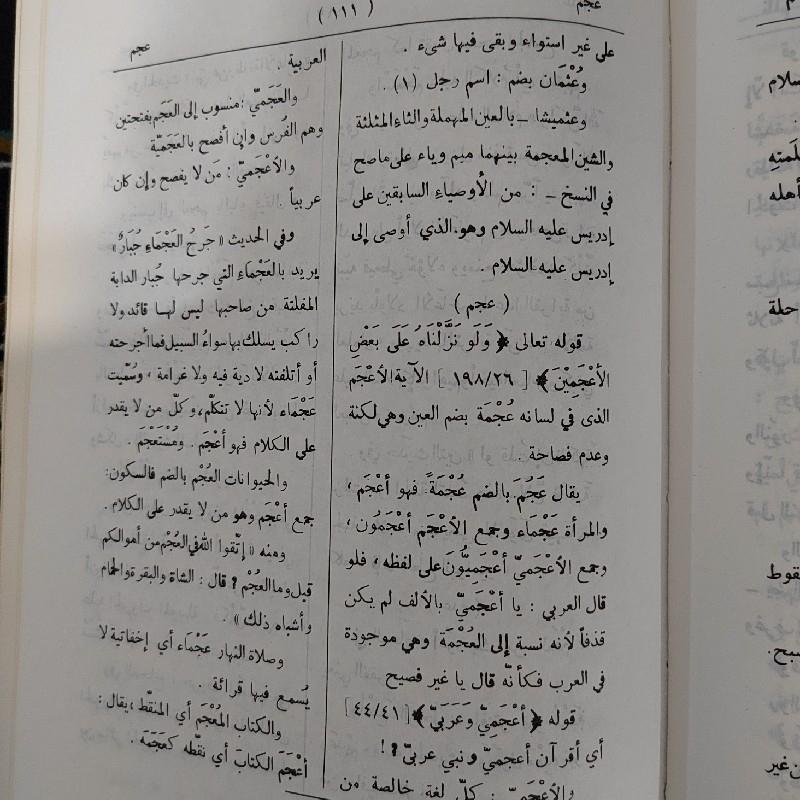 عجم
( ١١١ )
عجم
على غير استواء وبقى فيها شيء .
وعُثْمَان بضم : اسم رجل (١) .
وعثميشا ــ بالعين المهملة والثاء المثلثة
والشين المعجمة بينهما ميم وياء على ماصح
في النسخ ــ : من الأوصياء السابقين على
إدريس عليه السلام وهو الذي أوصى إلى
إدريس عليه السلام .
( عجم )
قوله تعالى ﴿ وَلَو نَزَّلْنَاهُ عَلَى بَعْضِ
الأَعْجَمِيْنَ ﴾ [ ١٩٨/٢٦ ] الآية الأعْجَم
الذى في لسانه عُجْمَة بضم العين وهي لكنة
وعدم فصاحة .
يقال عَجُمَ بالضم عُجْمَةً فهو أعْجَم ،
والمرأة عَجْمَاء وجمع الأعْجَم أعْجَمُون ،
وجمع الأعْجَمِيّ أعْجَمِيُّونَ على لفظه ، فلو
قال العربي : يا أعْجَمِيّ بالألف لم يكن
قذفاً لأنه نسبة إلى العُجْمَة وهي موجودة
في العرب فكأنّه قال يا غير فصيح
قوله ﴿ أعْجَمِيّ وَعَرَبَيّ ﴾ [ ٤٤/٤١ ]
أي أقرآن أعجميّ ونبي عربيّ ؟ !
والأعْجَمِيّ : كلّ لغة خالصة من
العربية .
والعَجَمِيّ : منسوب إلى العَجَم بفتحتين
وهم الفُرس وابى أفصح بالعَجَمِيّة
والأعْجَمِيّ : مَن لا يفصح وإن كان
عربياً .
وفي الحديث « جَرحُ العَجْمَاءِ جُبَارٌ »
يريد بالعَجْمَاءِ التي جرحها جُبار الدابة
المفلتة من صاحبها ليس لهــا قائد ولا
راكب يسلك بها سواءَ السبيل فما أجرحته
أو أتلفته لا دية فيه ولا غرامة ، وسُمّيت
عَجْمَاء لأنها لا تتكلّم ، وكلّ من لا يقدر
على الكلام فهو أعْجَم . ومُسْتَعْجَم .
والحيوانات العُجْم بالضم فالسكون :
جمع أعْجَم وهو من لا يقدر على الكلام .
ومنه « إتّقوا الله في العُجْم من أموالكم
قيل وما العُجْم ؟ قال : الشاة والبقرة والحمام
وأشباه ذلك » .
وصلاة النهار عَجْمَاء أي إخفاتية لا
يُسمع فيها قرائة .
والكتاب المُعْجَم أي المنقّط ، يقال :
أعْجَمَ الكتابَ أي نقّطه كعَجَمَهُ .
سلام
أهله
حلة
قوط
سبح.
ن غير